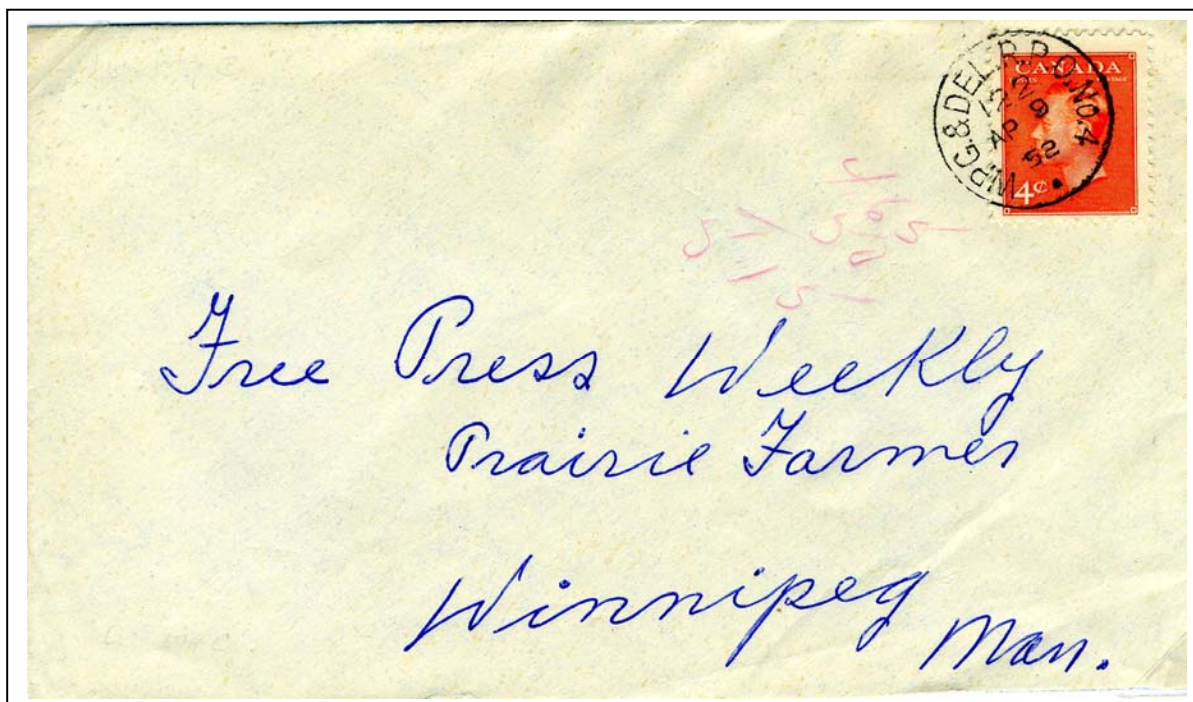 WPG. & DEL. R.P.O. No. 4
29
AP
52
CANADA
4¢
Free Press Weekly
Prairie Farmer
Winnipeg
Man.